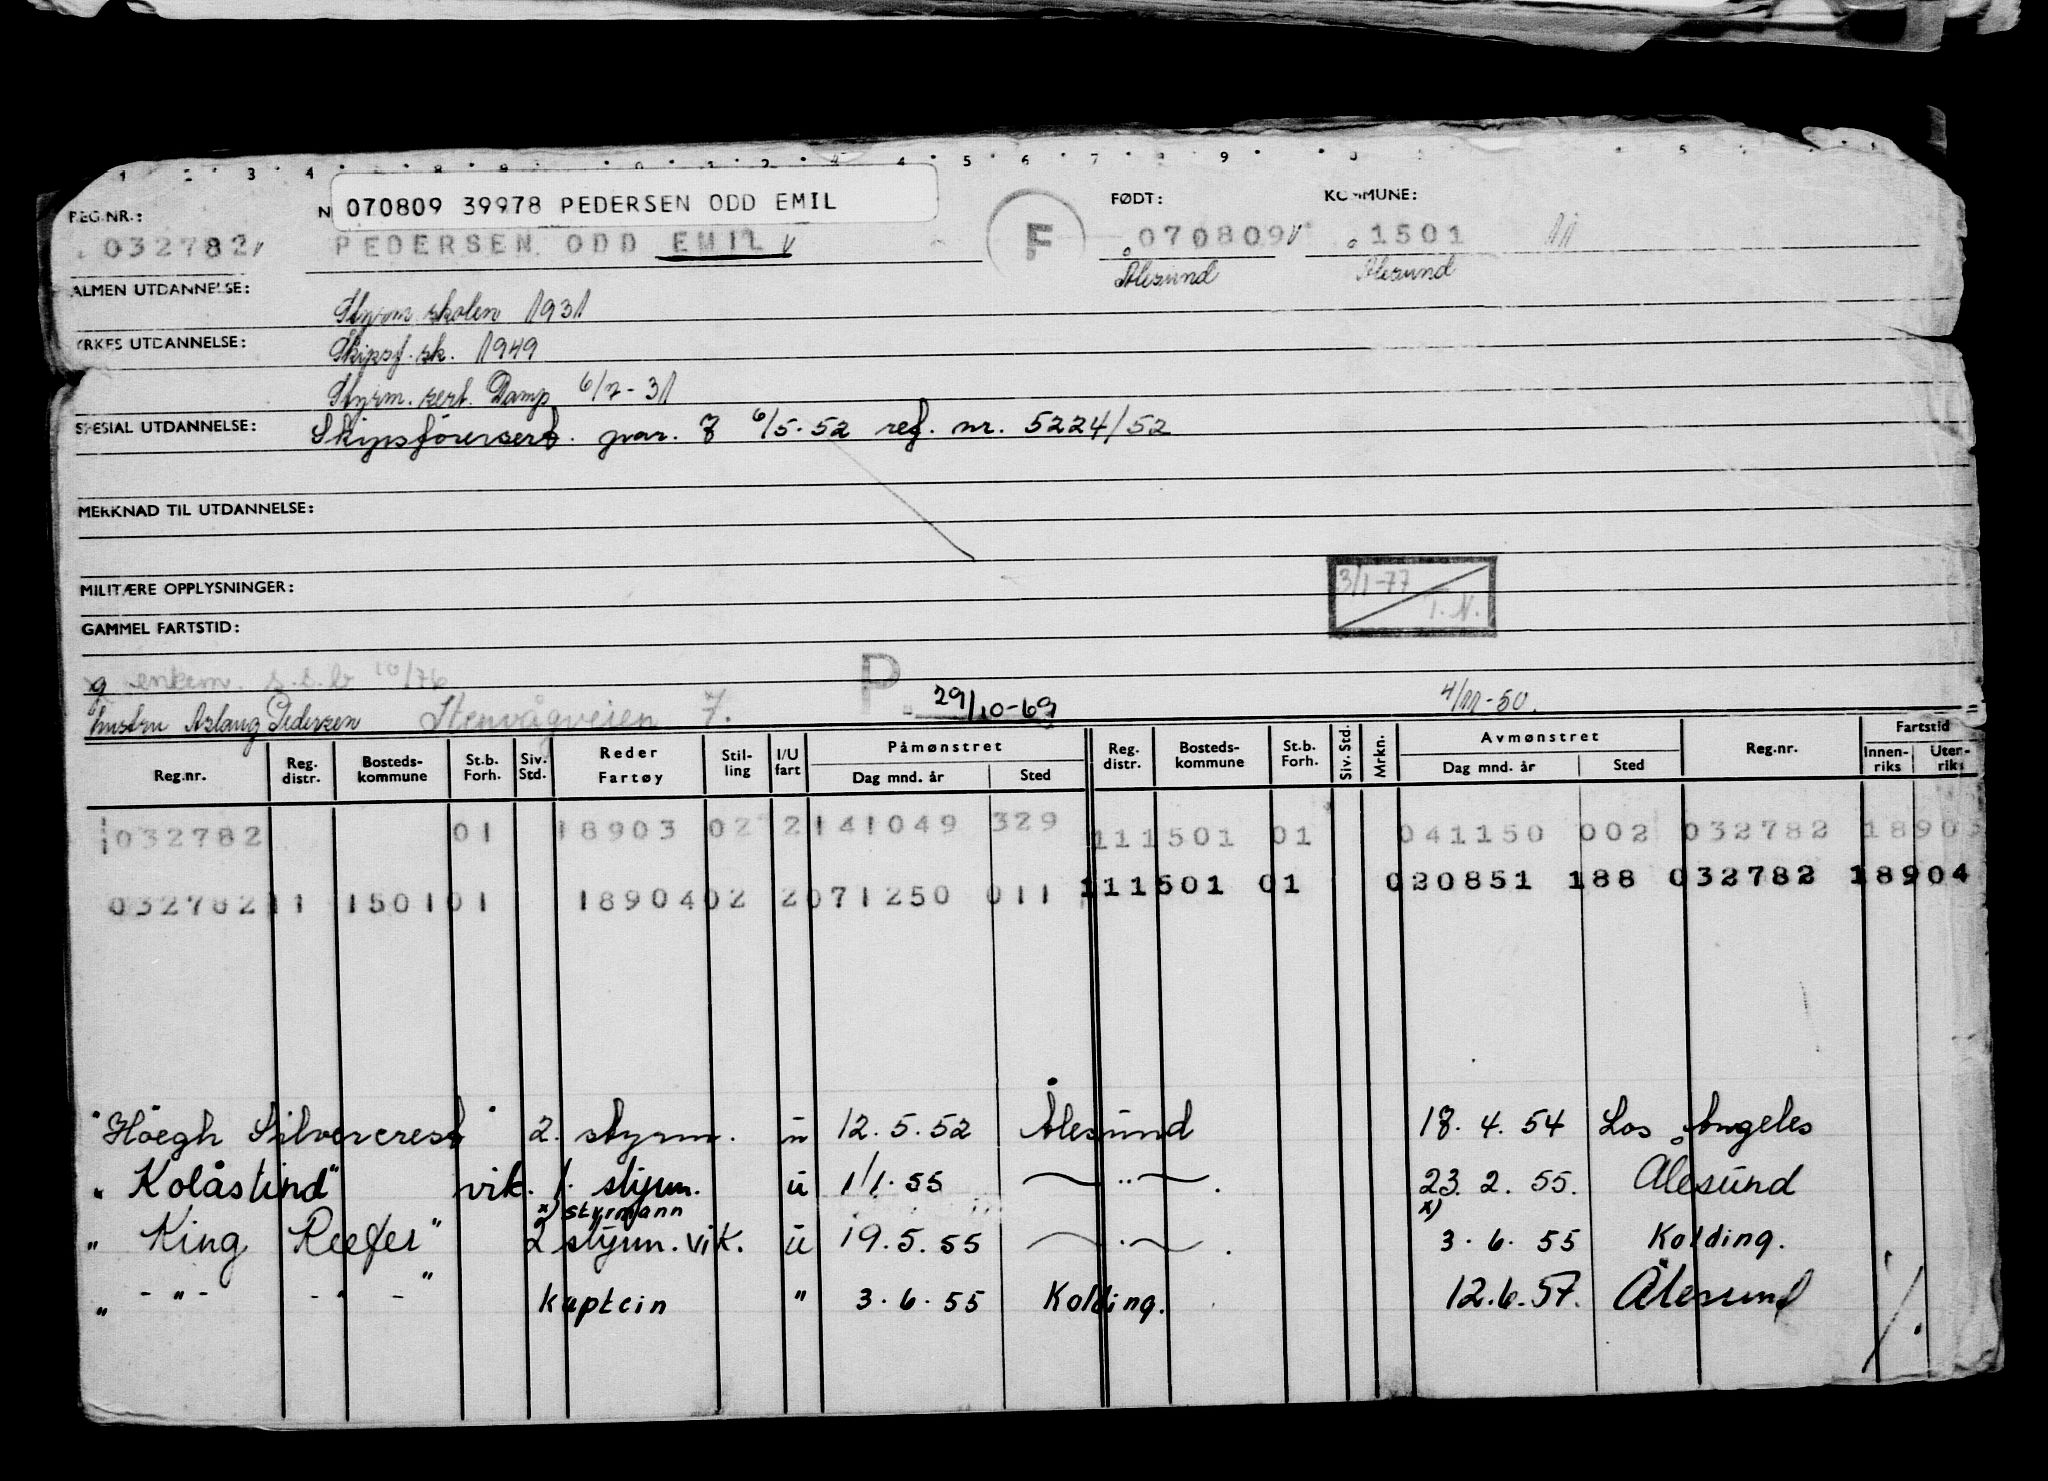 070809 39978 PEDERSEN ODD EMIL
REG.NR.: FØDT: KOMMUNE:
032782 PEDERSEN ODD EMIL F 070809 1501
Ålesund Ålesund
ALMEN UTDANNELSE:
Styrm. skolen 1931
YRKES UTDANNELSE: Skipsf. sk. 1949
Styrm. sert. Damp 6/7-31
SPESIAL UTDANNELSE: Skipsförersert. par. 7 6/5-52 ref. nr. 5224/52
MERKNAD TIL UTDANNELSE:
3/1-77
T.N.
MILITÆRE OPPLYSNINGER:
GAMMEL FARTSTID:
g enkem. s.s.b 10/76 P.
hustru Aslaug Pedersen Stenvågveien 7. 29/10-69 4/11-50.
Reg.nr. Reg. distr. Bosteds-kommune St.b. Forh. Siv. Std. Reder Fartøy Stil-ling I/U fart Påmønstret Dag mnd. år Sted Reg. distr. Bosteds-kommune St.b. Forh. Siv. Std. Mrkn. Avmønstret Dag mnd. år Sted Reg.nr. Fartstid Innen-riks Uten-riks
032782 01 18903 02 2 141049 329 111501 01 041150 002 032782 18903
032782 11 1501 01 18904 02 2 071250 011 111501 01 020851 188 032782 18904
"Höegh Silvercrest" 2. styrm. u 12.5.52 Ålesund 18.4.54 Los Angeles
" Kolåstind" vik. 1. styrm. u 1/1.55 —"— . 23.2.55. Ålesund
x) styrmann x)
" King Reefer" 2 styrm. vik. u 19.5.55 —"— . 3.6.55 Kolding.
" -"- -"- " kaptein " 3.6.55 Kolding. 12.6.57. Ålesund